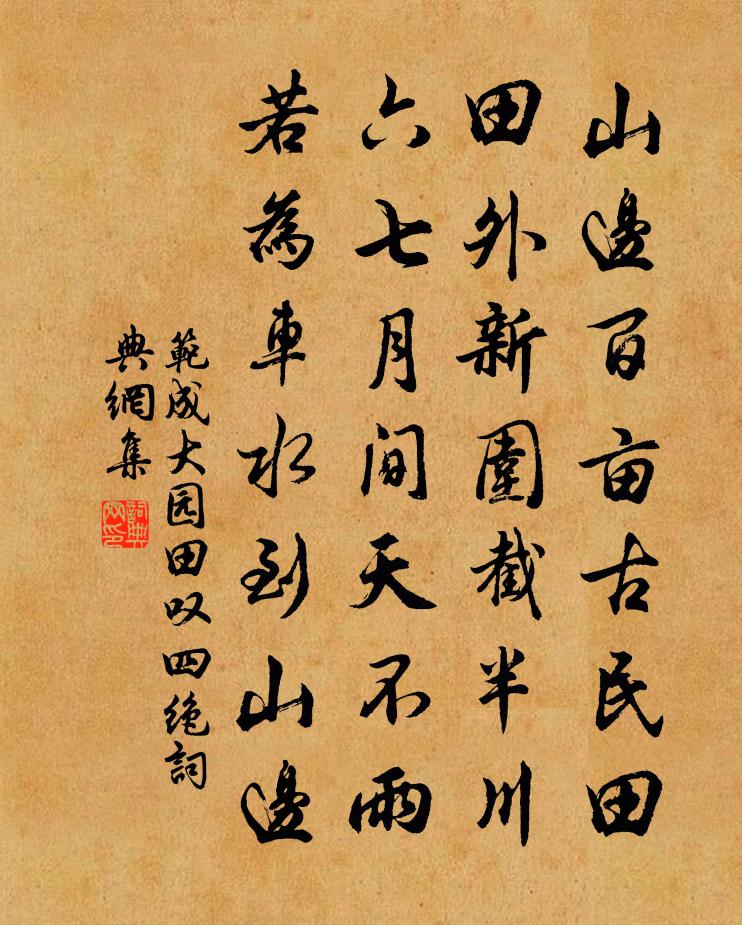 山邊百亩古民田
田外新圍截半川
六七月间天不雨
若為車水到山邊
範成大园田叹四绝詞
典網集
詞典网印